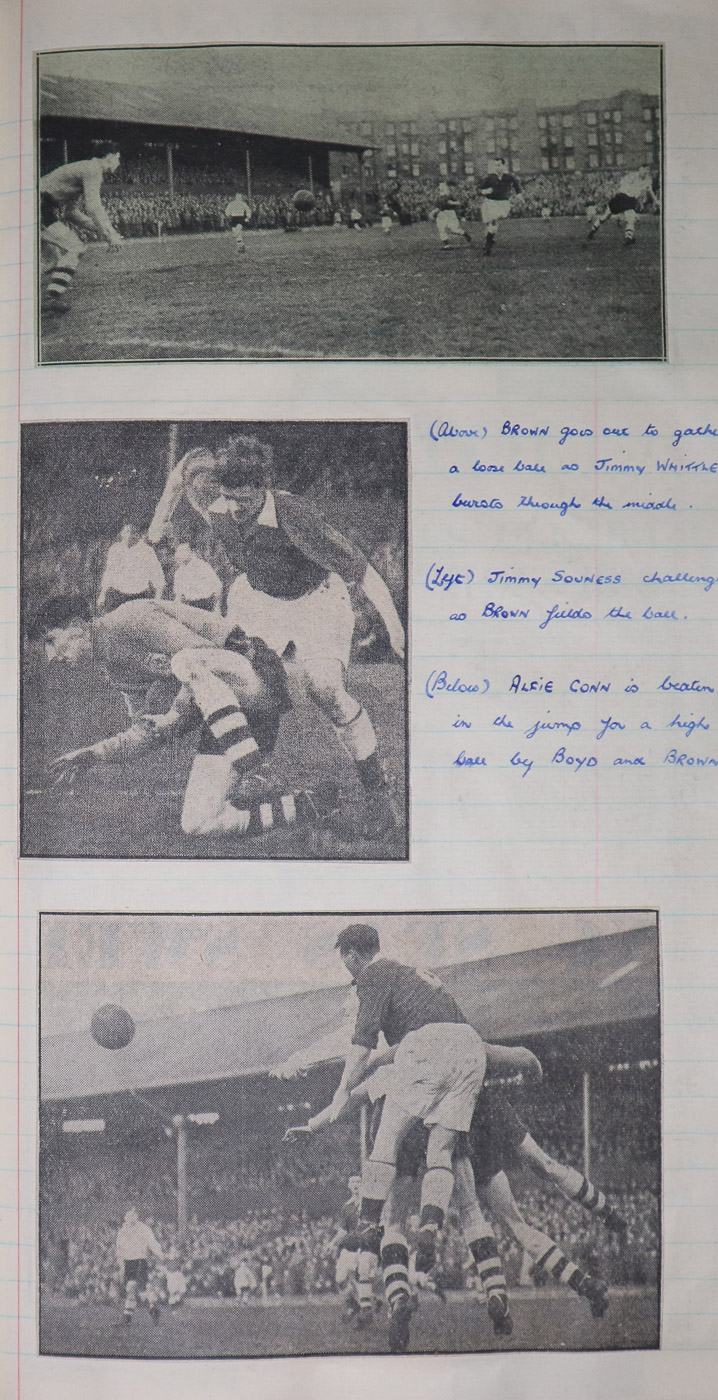 (Above) BROWN goes out to gathe
a loose ball as Jimmy WHITTLE
bursts through the middle.
(Left) Jimmy SOUNESS challeng
as BROWN fields the ball.
(Below) ALFIE CONN is beaten
in the jump for a high
ball by BOYD and BROWN